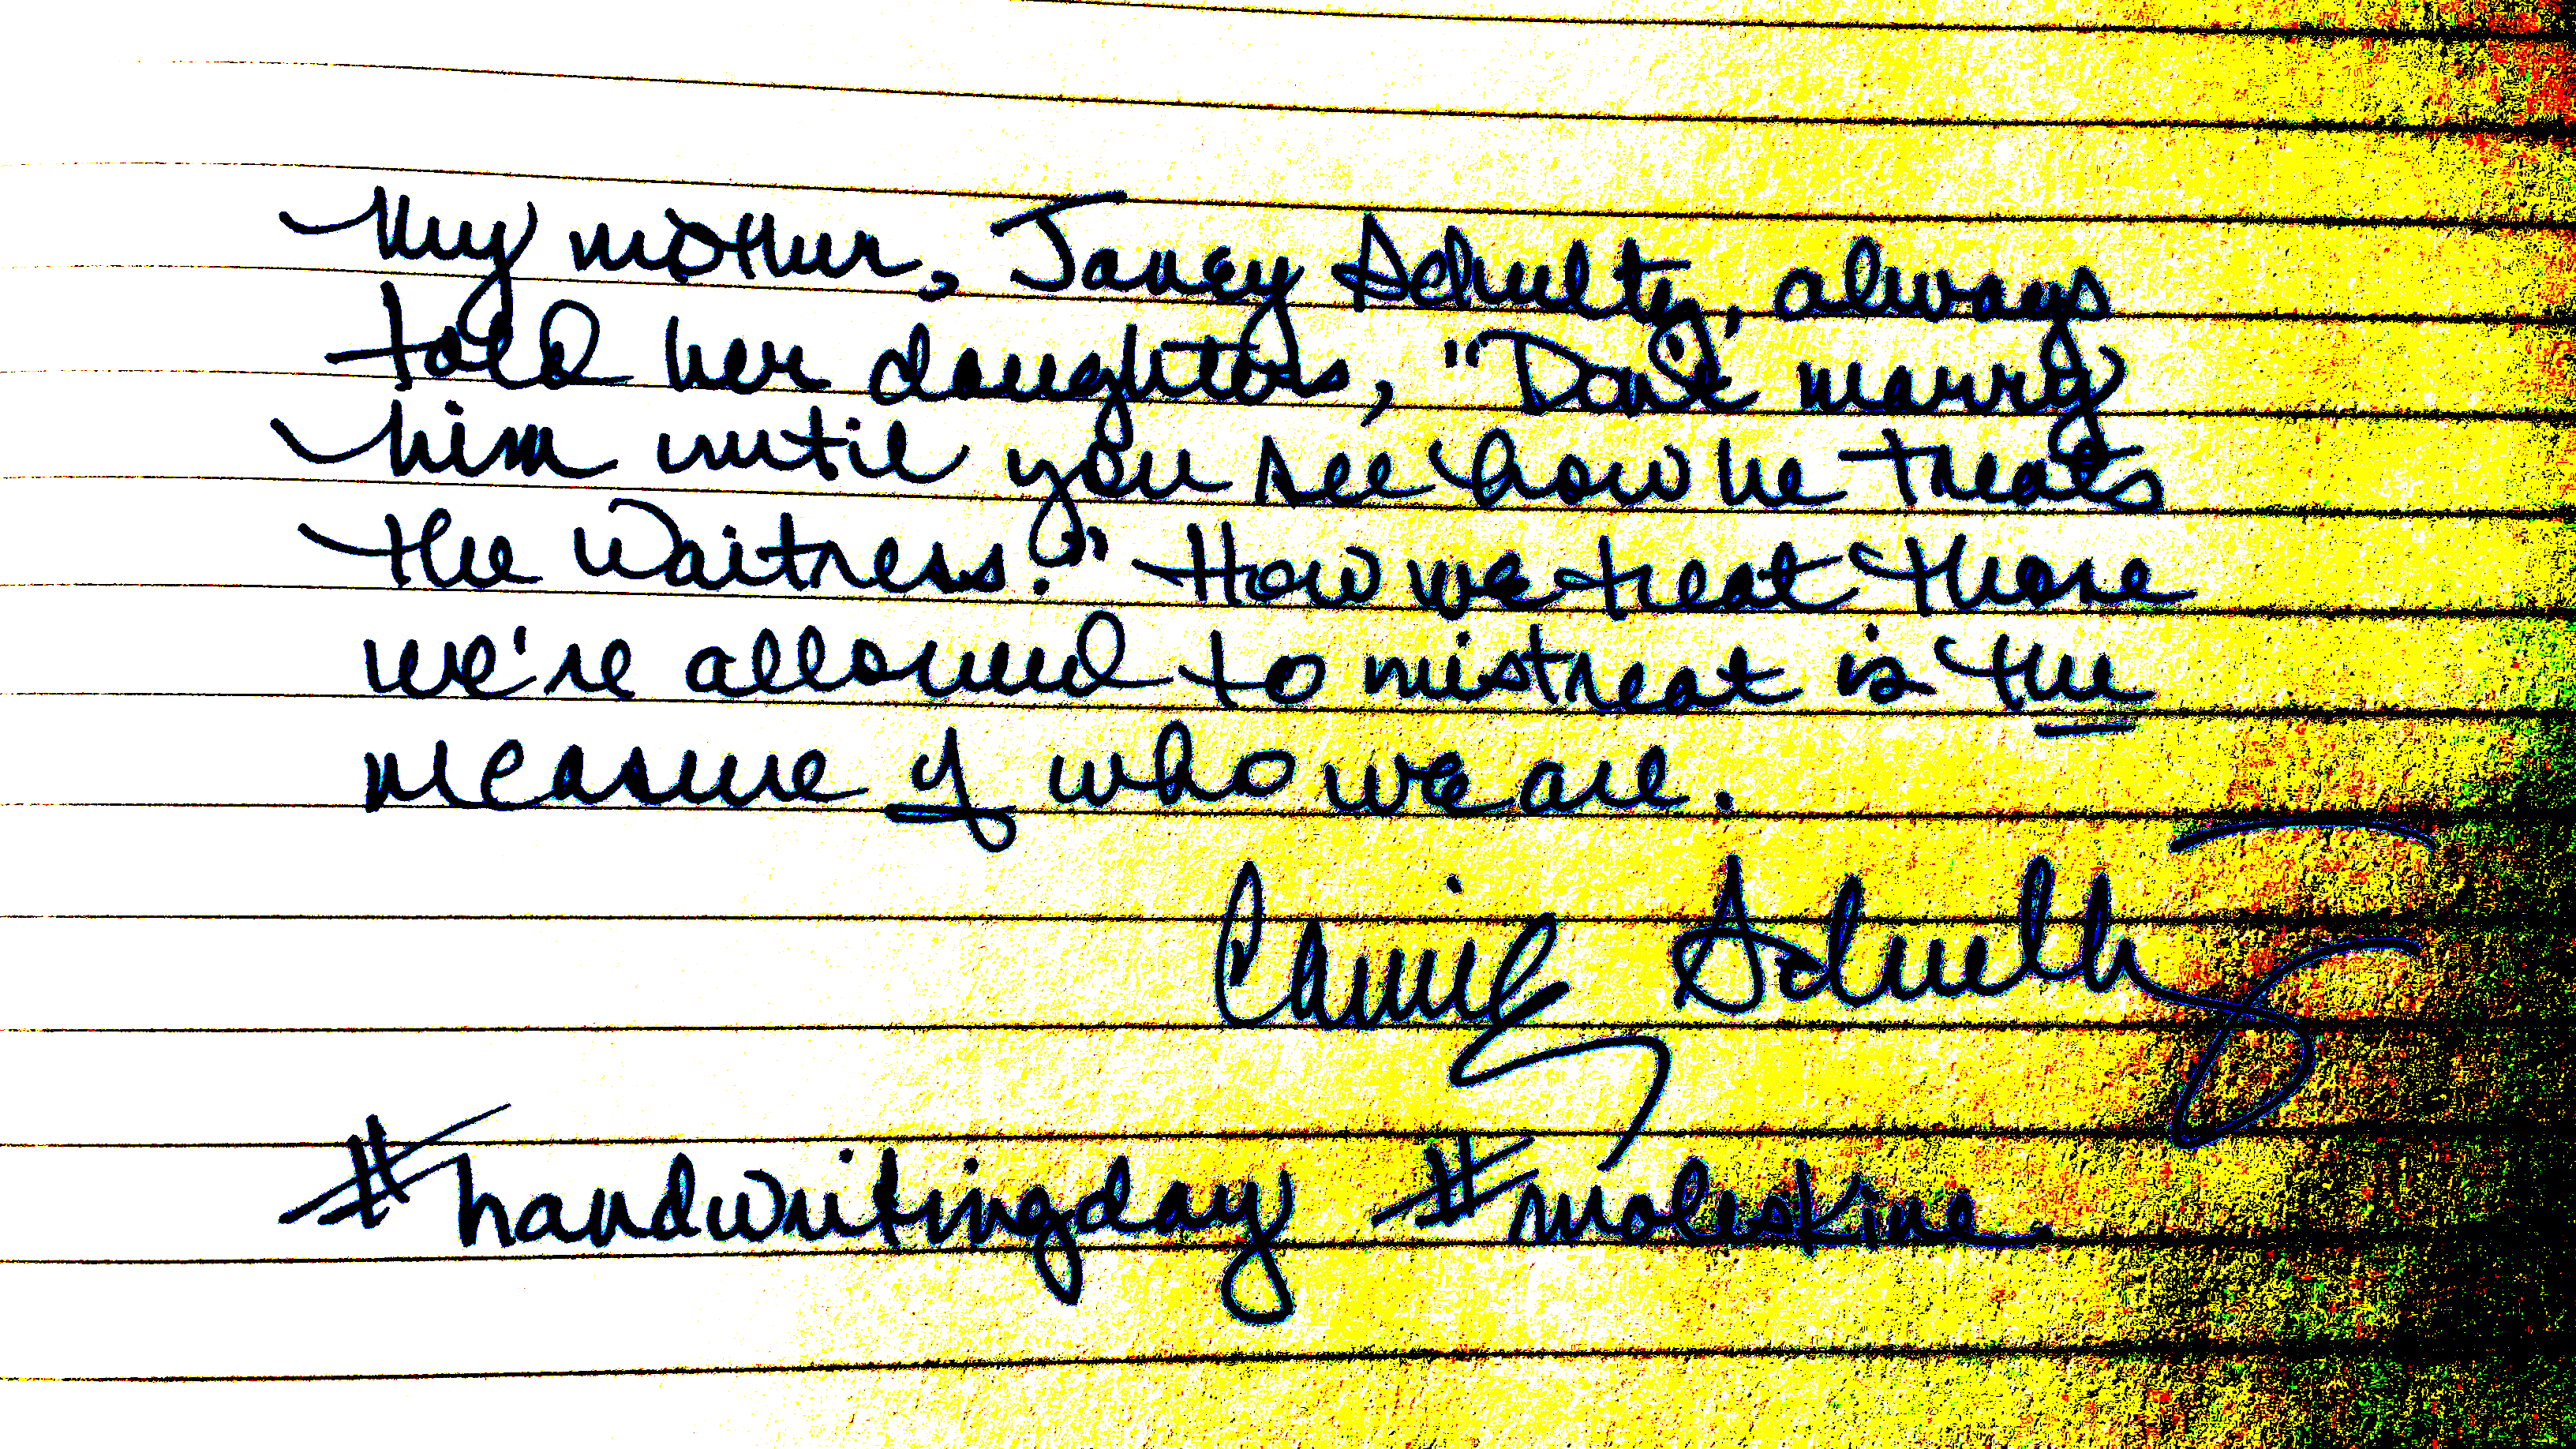 My mother, Janey Schultz, always
told her daughters, "Don't marry
him until you see how he treats
the waitress." How we treat those
we're allowed to mistreat is the
measure of who we are.
Connie Schultz
#handwritingday #moleskine.